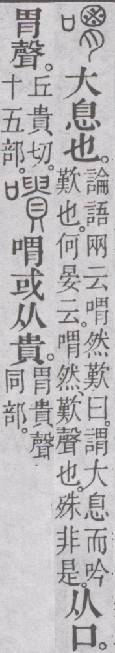 大息也。論語兩云喟然歎曰。謂大息而吟歎也。何晏云。喟然、歎聲也。殊非是。从口。
胃聲。丘貴切。十五部。㗦喟或从貴。胃貴聲同部。